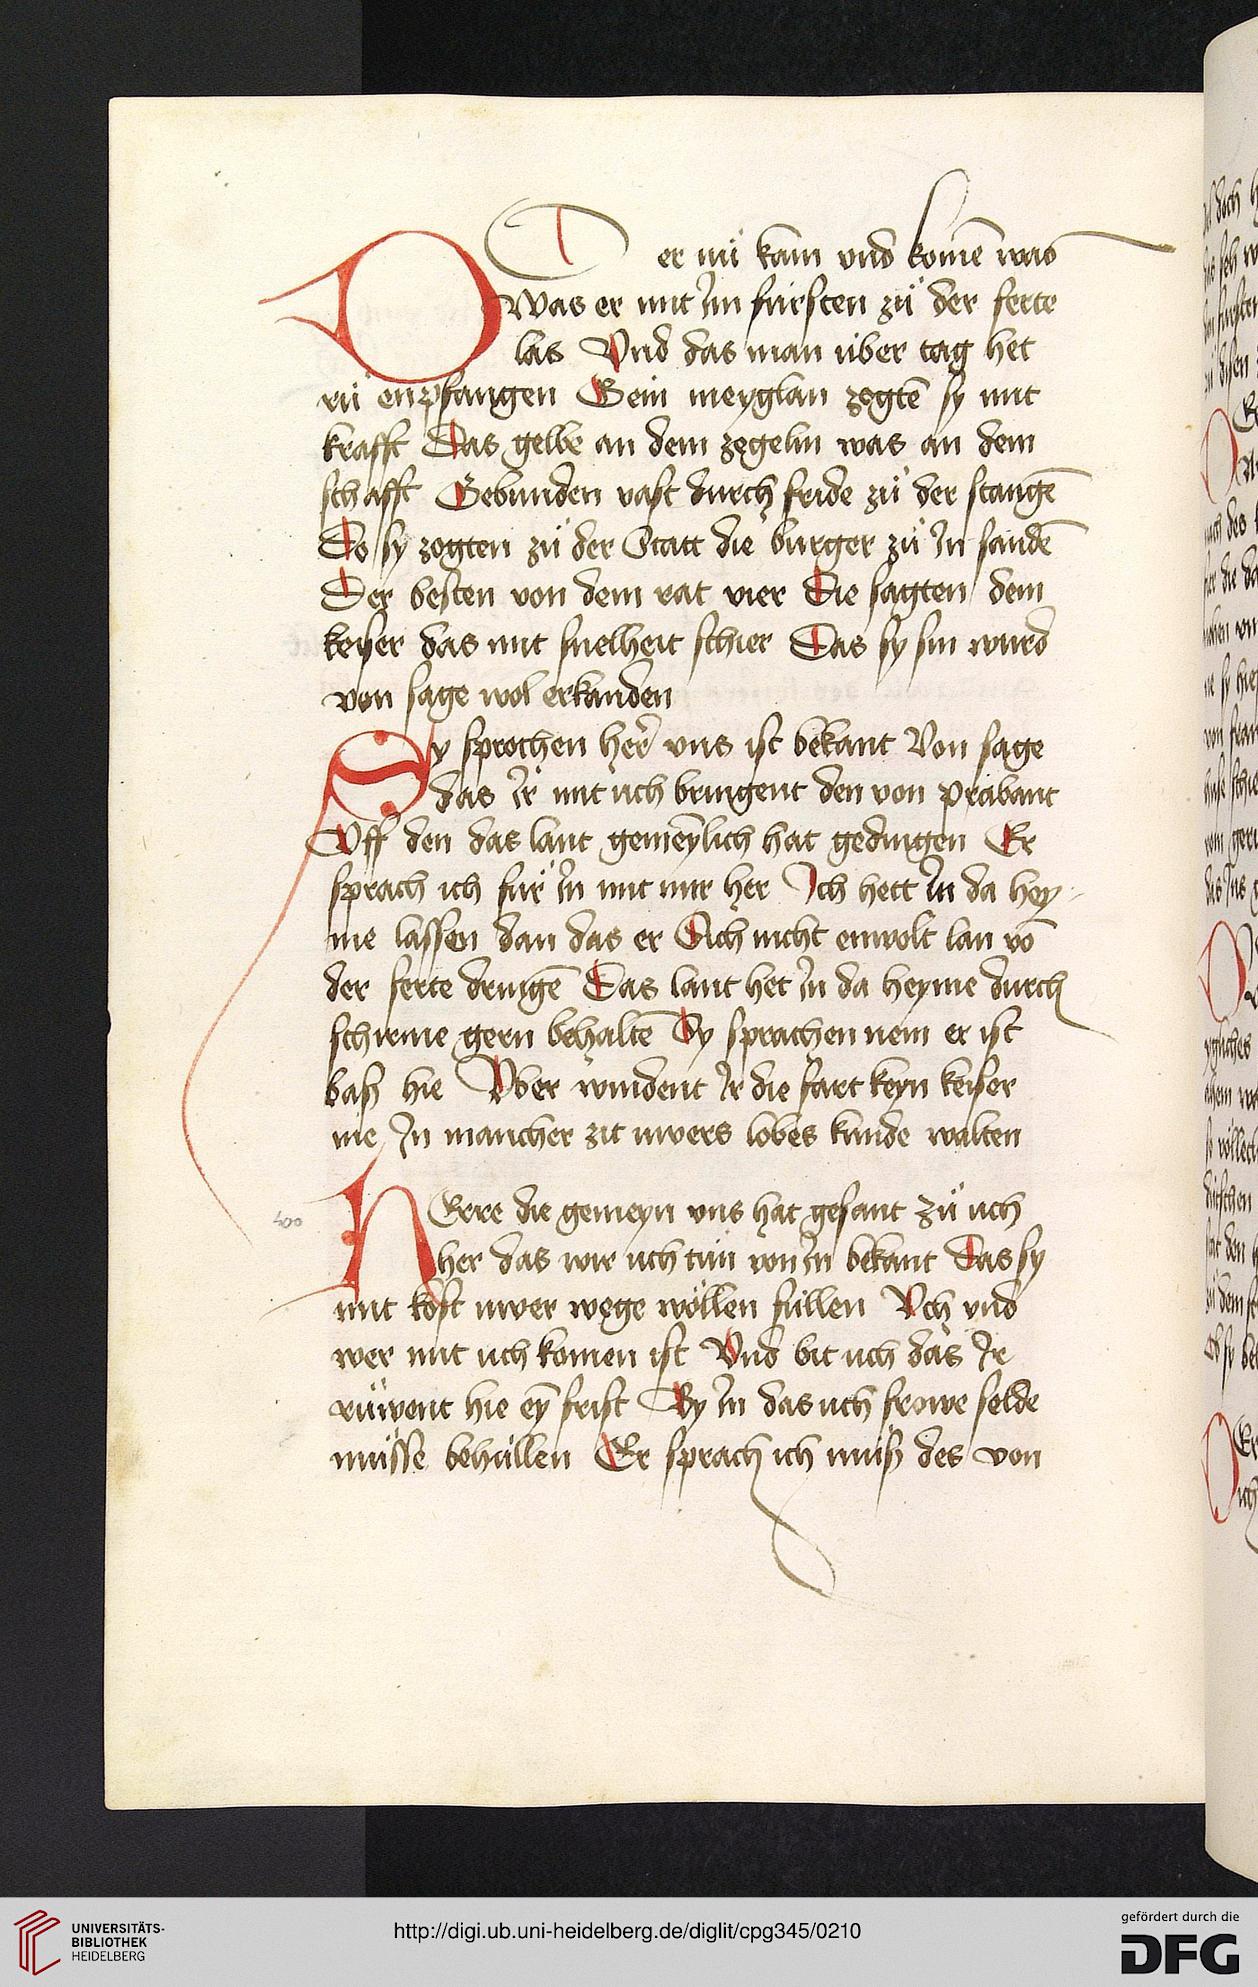 Der nü kam vnd komē was
Was er mit Jm fürsten zü der ferte
las Vnd das man über tag het
rü enpfangen Gein meyglan zogtē sy mit
krafft Das gelbe an dem zegelin was an dem
schafft Gebunden vast durch fride zü der stangē
Do sy zogten zü der Statt die burger zü Jn sandē
Der besten von dem rat vier Die sagten dem
keyser das mit snelheit schier Das sy sin wurd
von sage wol erkanden
Sy sprochen her vns ist bekant Von sage
das Jr mit uch bringent den von prabant
Vff den das lant gemeȳlich hat gedingen Er
sprach ich für Jn mit mir her Jch hett Jn da hey-
me lassen dan das er Sich nicht enwolt lan vō
der ferte dringē Das lant het Jn da heyme durch
schirme gern behaltē Sy sprachen nein er ist
baß hie Vber windent Jr die fart keyn keiser
me Jn mancher zit uwers lobes kunde walten
400
HErre die gemeyn vns hat gesant zü uch
her das wir uch tün von Jn bekant Das sy
mit kost uwer wege wöllen füllen Vch vnd
wer mit uch komen ist Vnd bit uch das Jr
rüwent hie eȳ frist By Jn das uch frowe selde
müsse behüllen Er sprach ich müß des von
UNIVERSITÄTS-
BIBLIOTHEK
HEIDELBERG
http://digi.ub.uni-heidelberg.de/diglit/cpg345/0210
gefördert durch die
DFG